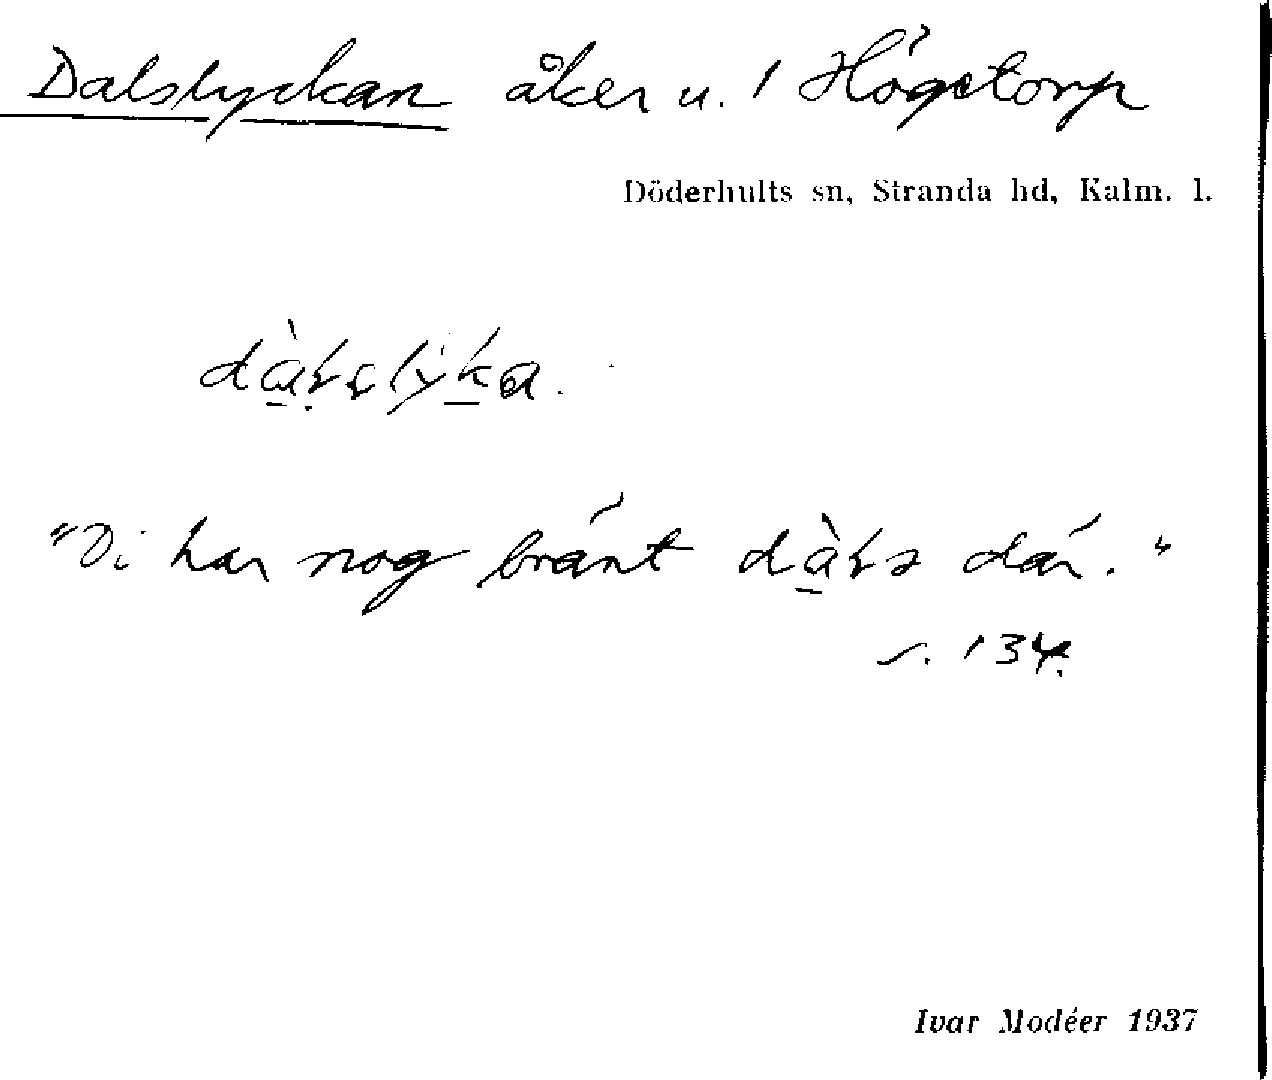 Dalslyckan åker u. 1 Högetorp
Döderhults sn, Stranda hd, Kalm. l.
"Di har nog bränt där."
s. 134.
Ivar Modéer 1937